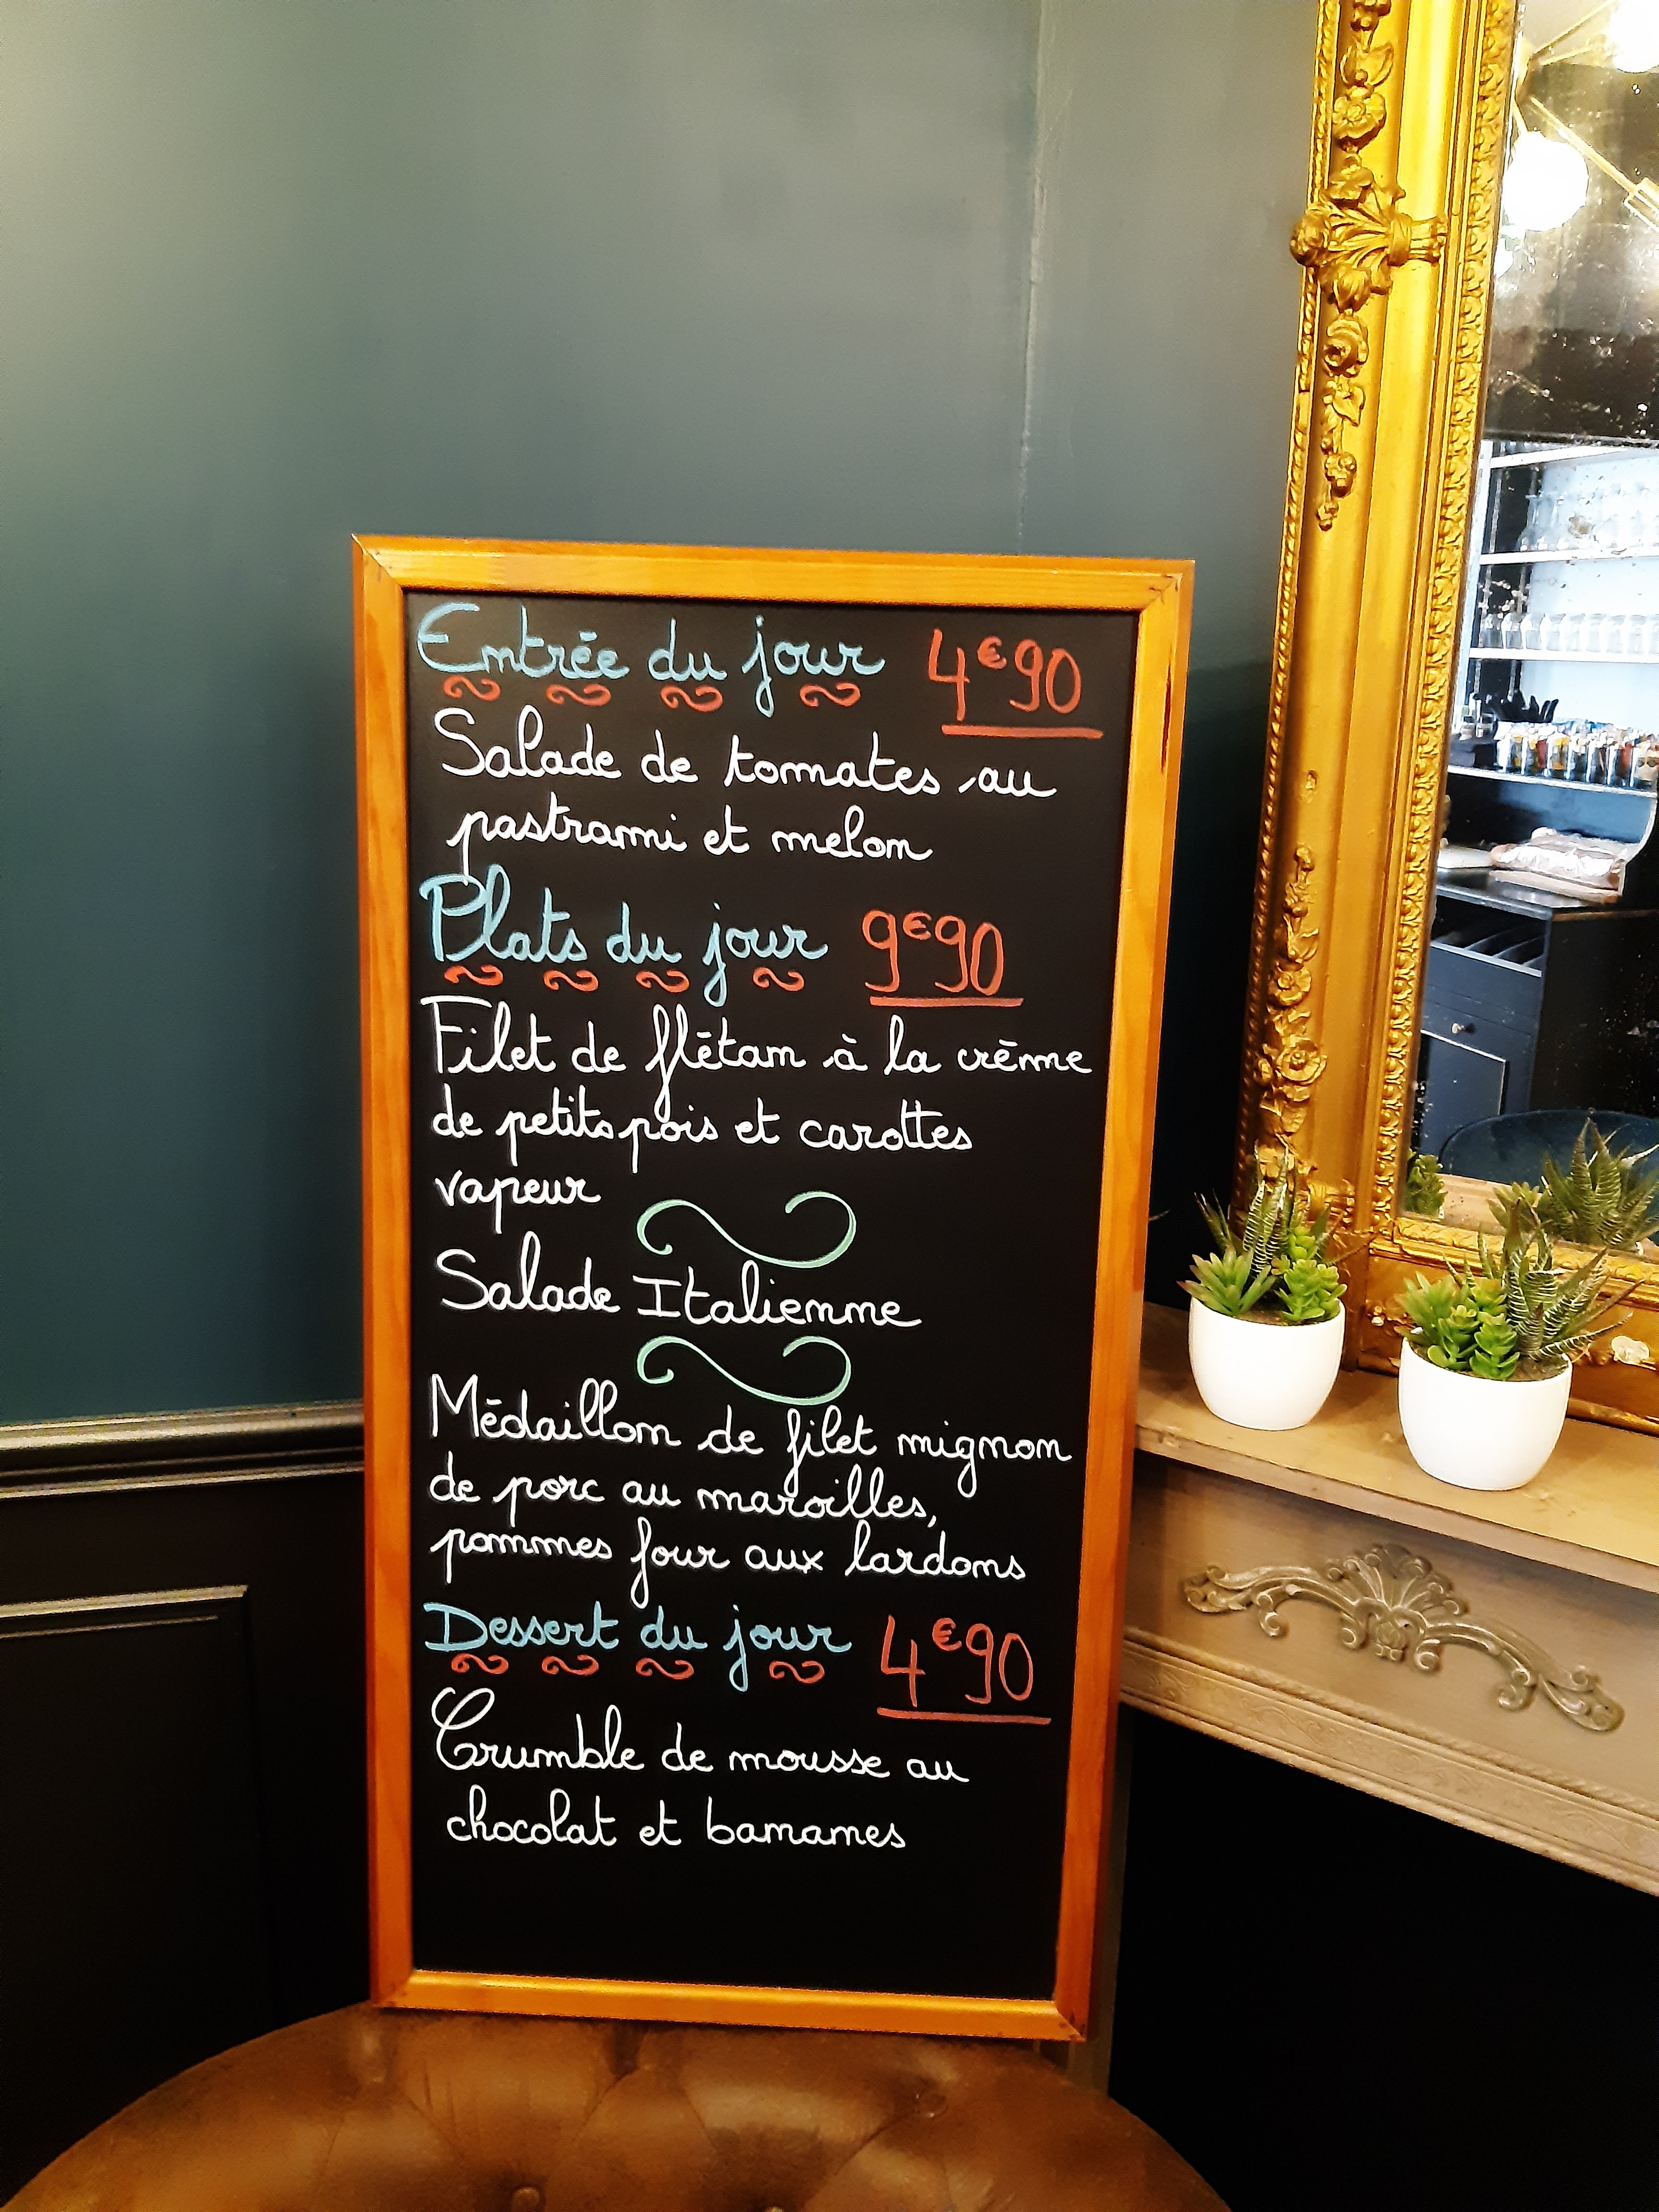 Entrée du jour 4€90
Salade de tomates au
pastrami et melon
Plats du jour 9€90
Filet de flétan à la crème
de petits pois et carottes
vapeur
Salade Italienne
Médaillon de filet mignon
de porc au maroilles,
pommes four aux lardons
Dessert du jour 4€90
Crumble de mousse au
chocolat et bananes